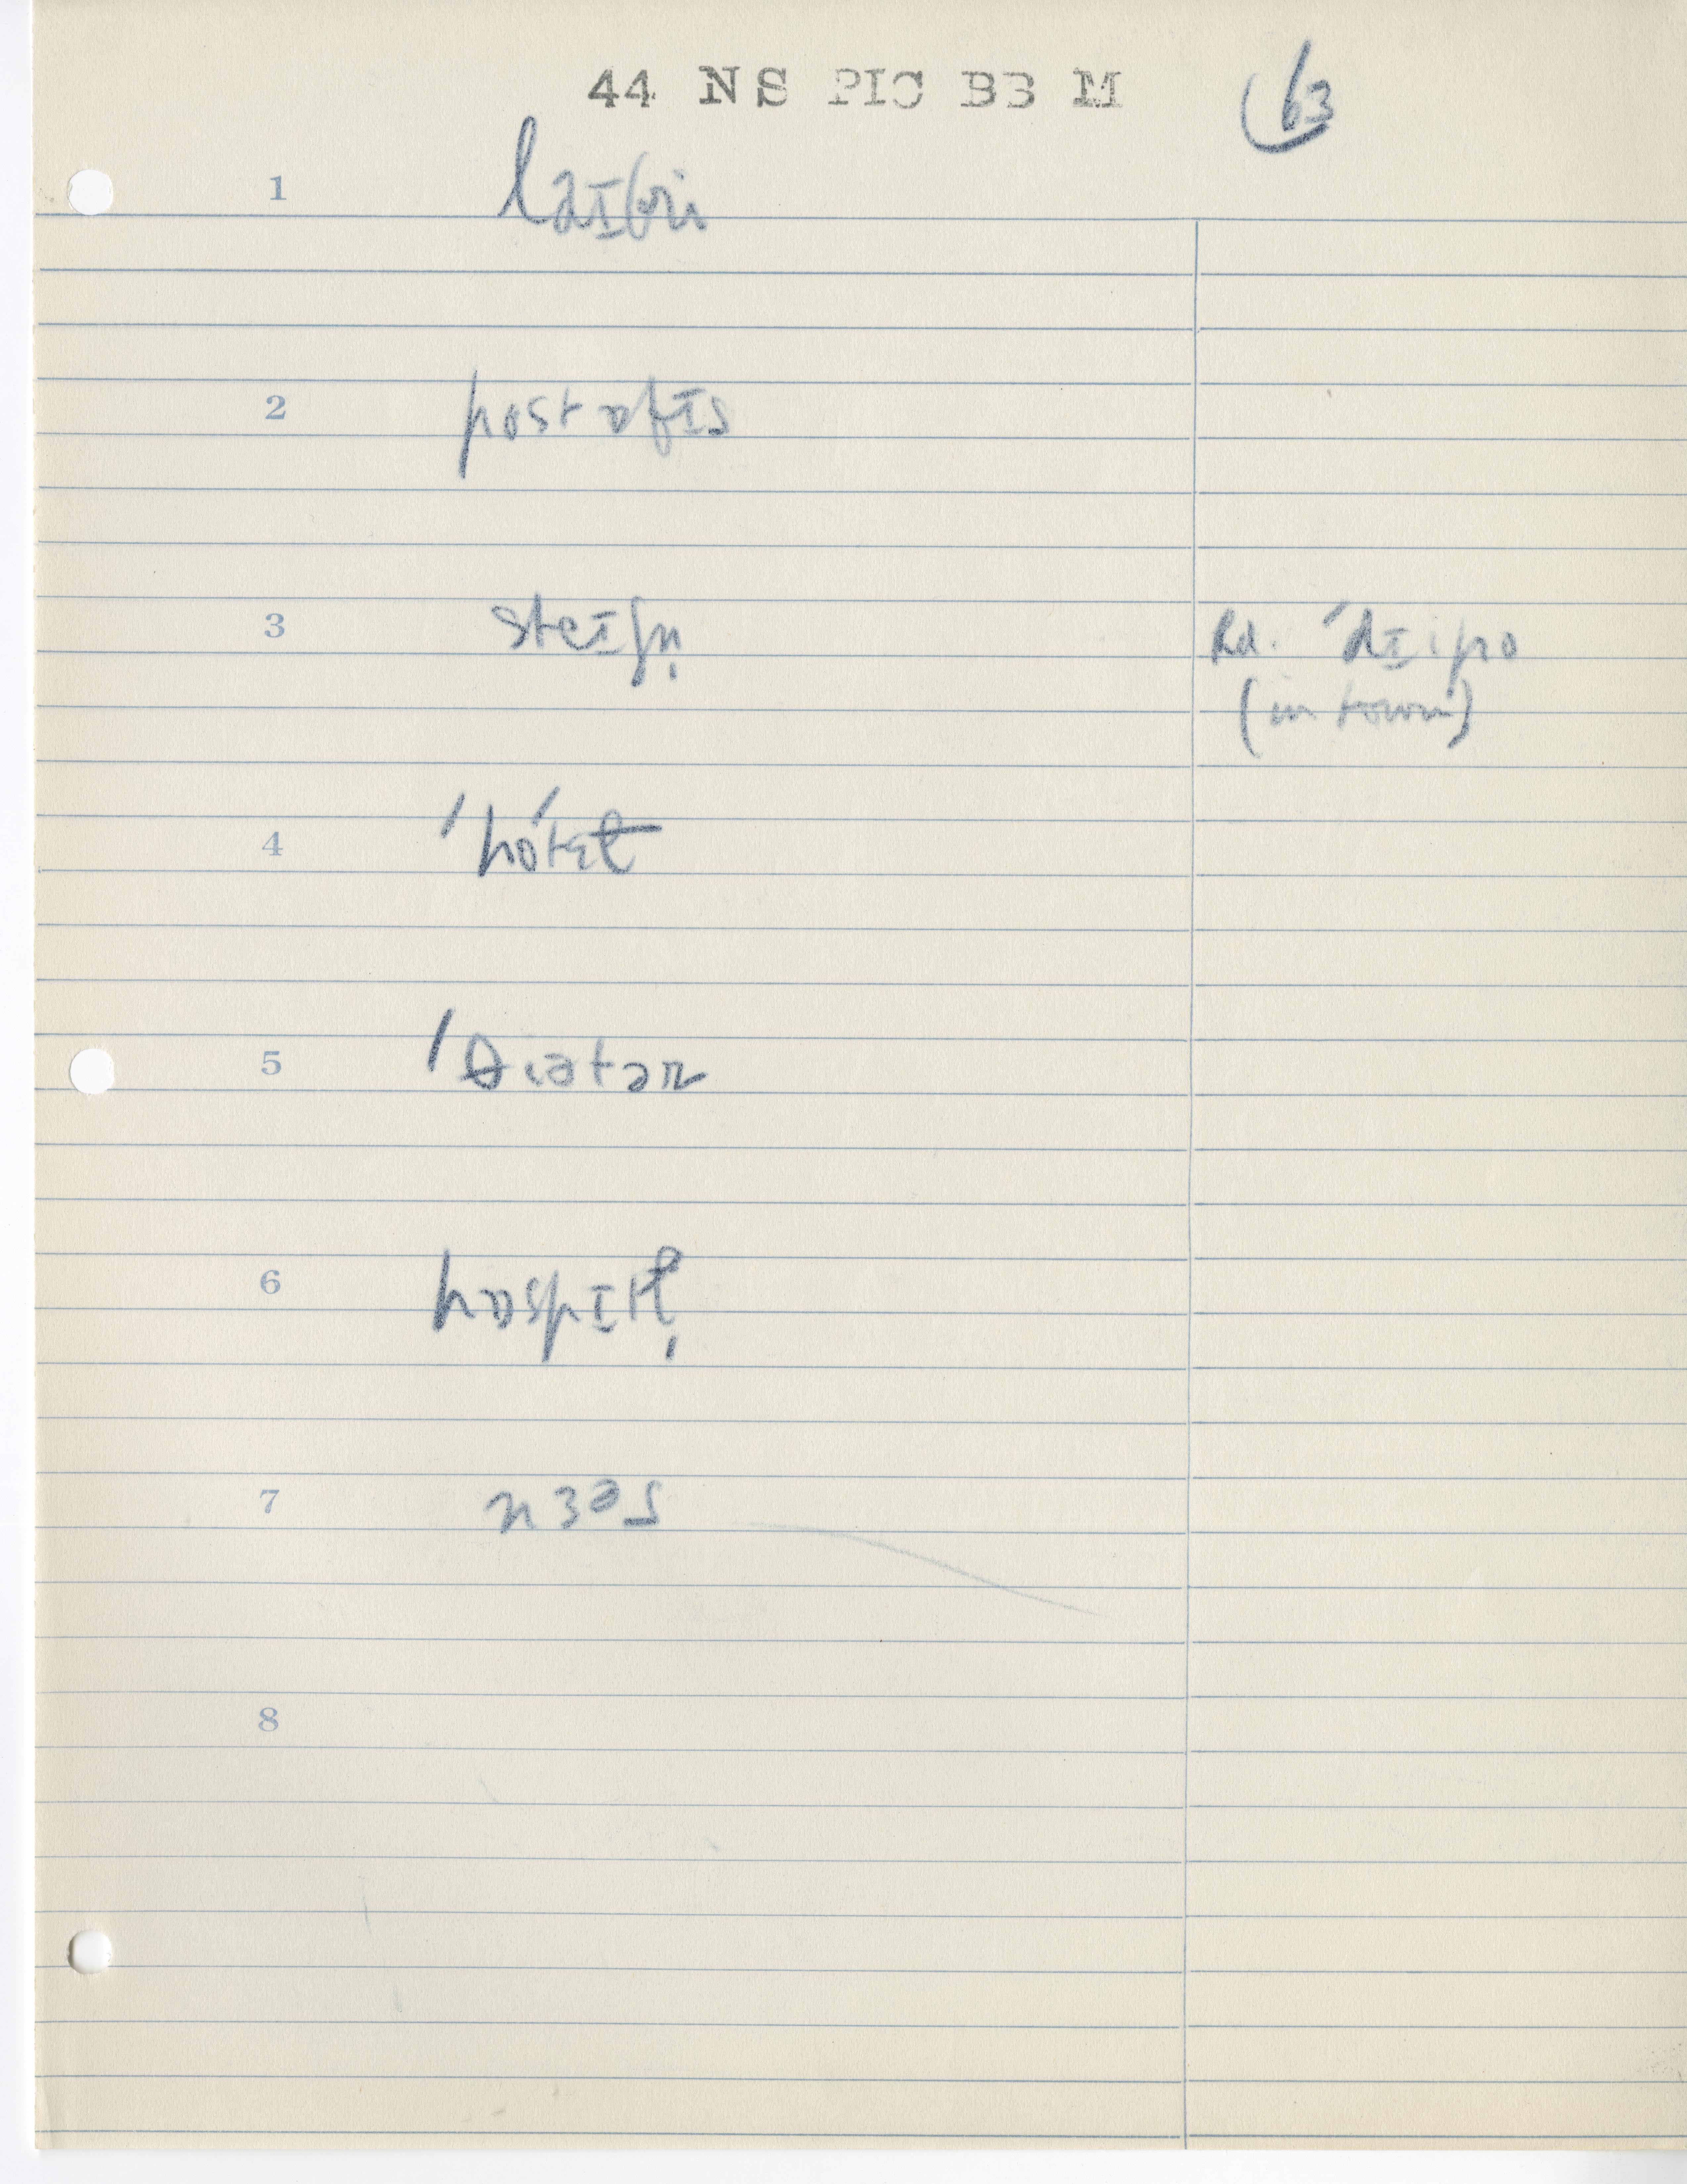 44 NS PIC BB M
63
1 laɪbri
2 post ɒfɪs
3 steɪʃn̩
Rd. ˈdɪipo
(in town)
4 ˈhóˈtɛɫ
5 ˈθiətəɹ
6 hɒspɪtɫ̩
7 nɜəs
8